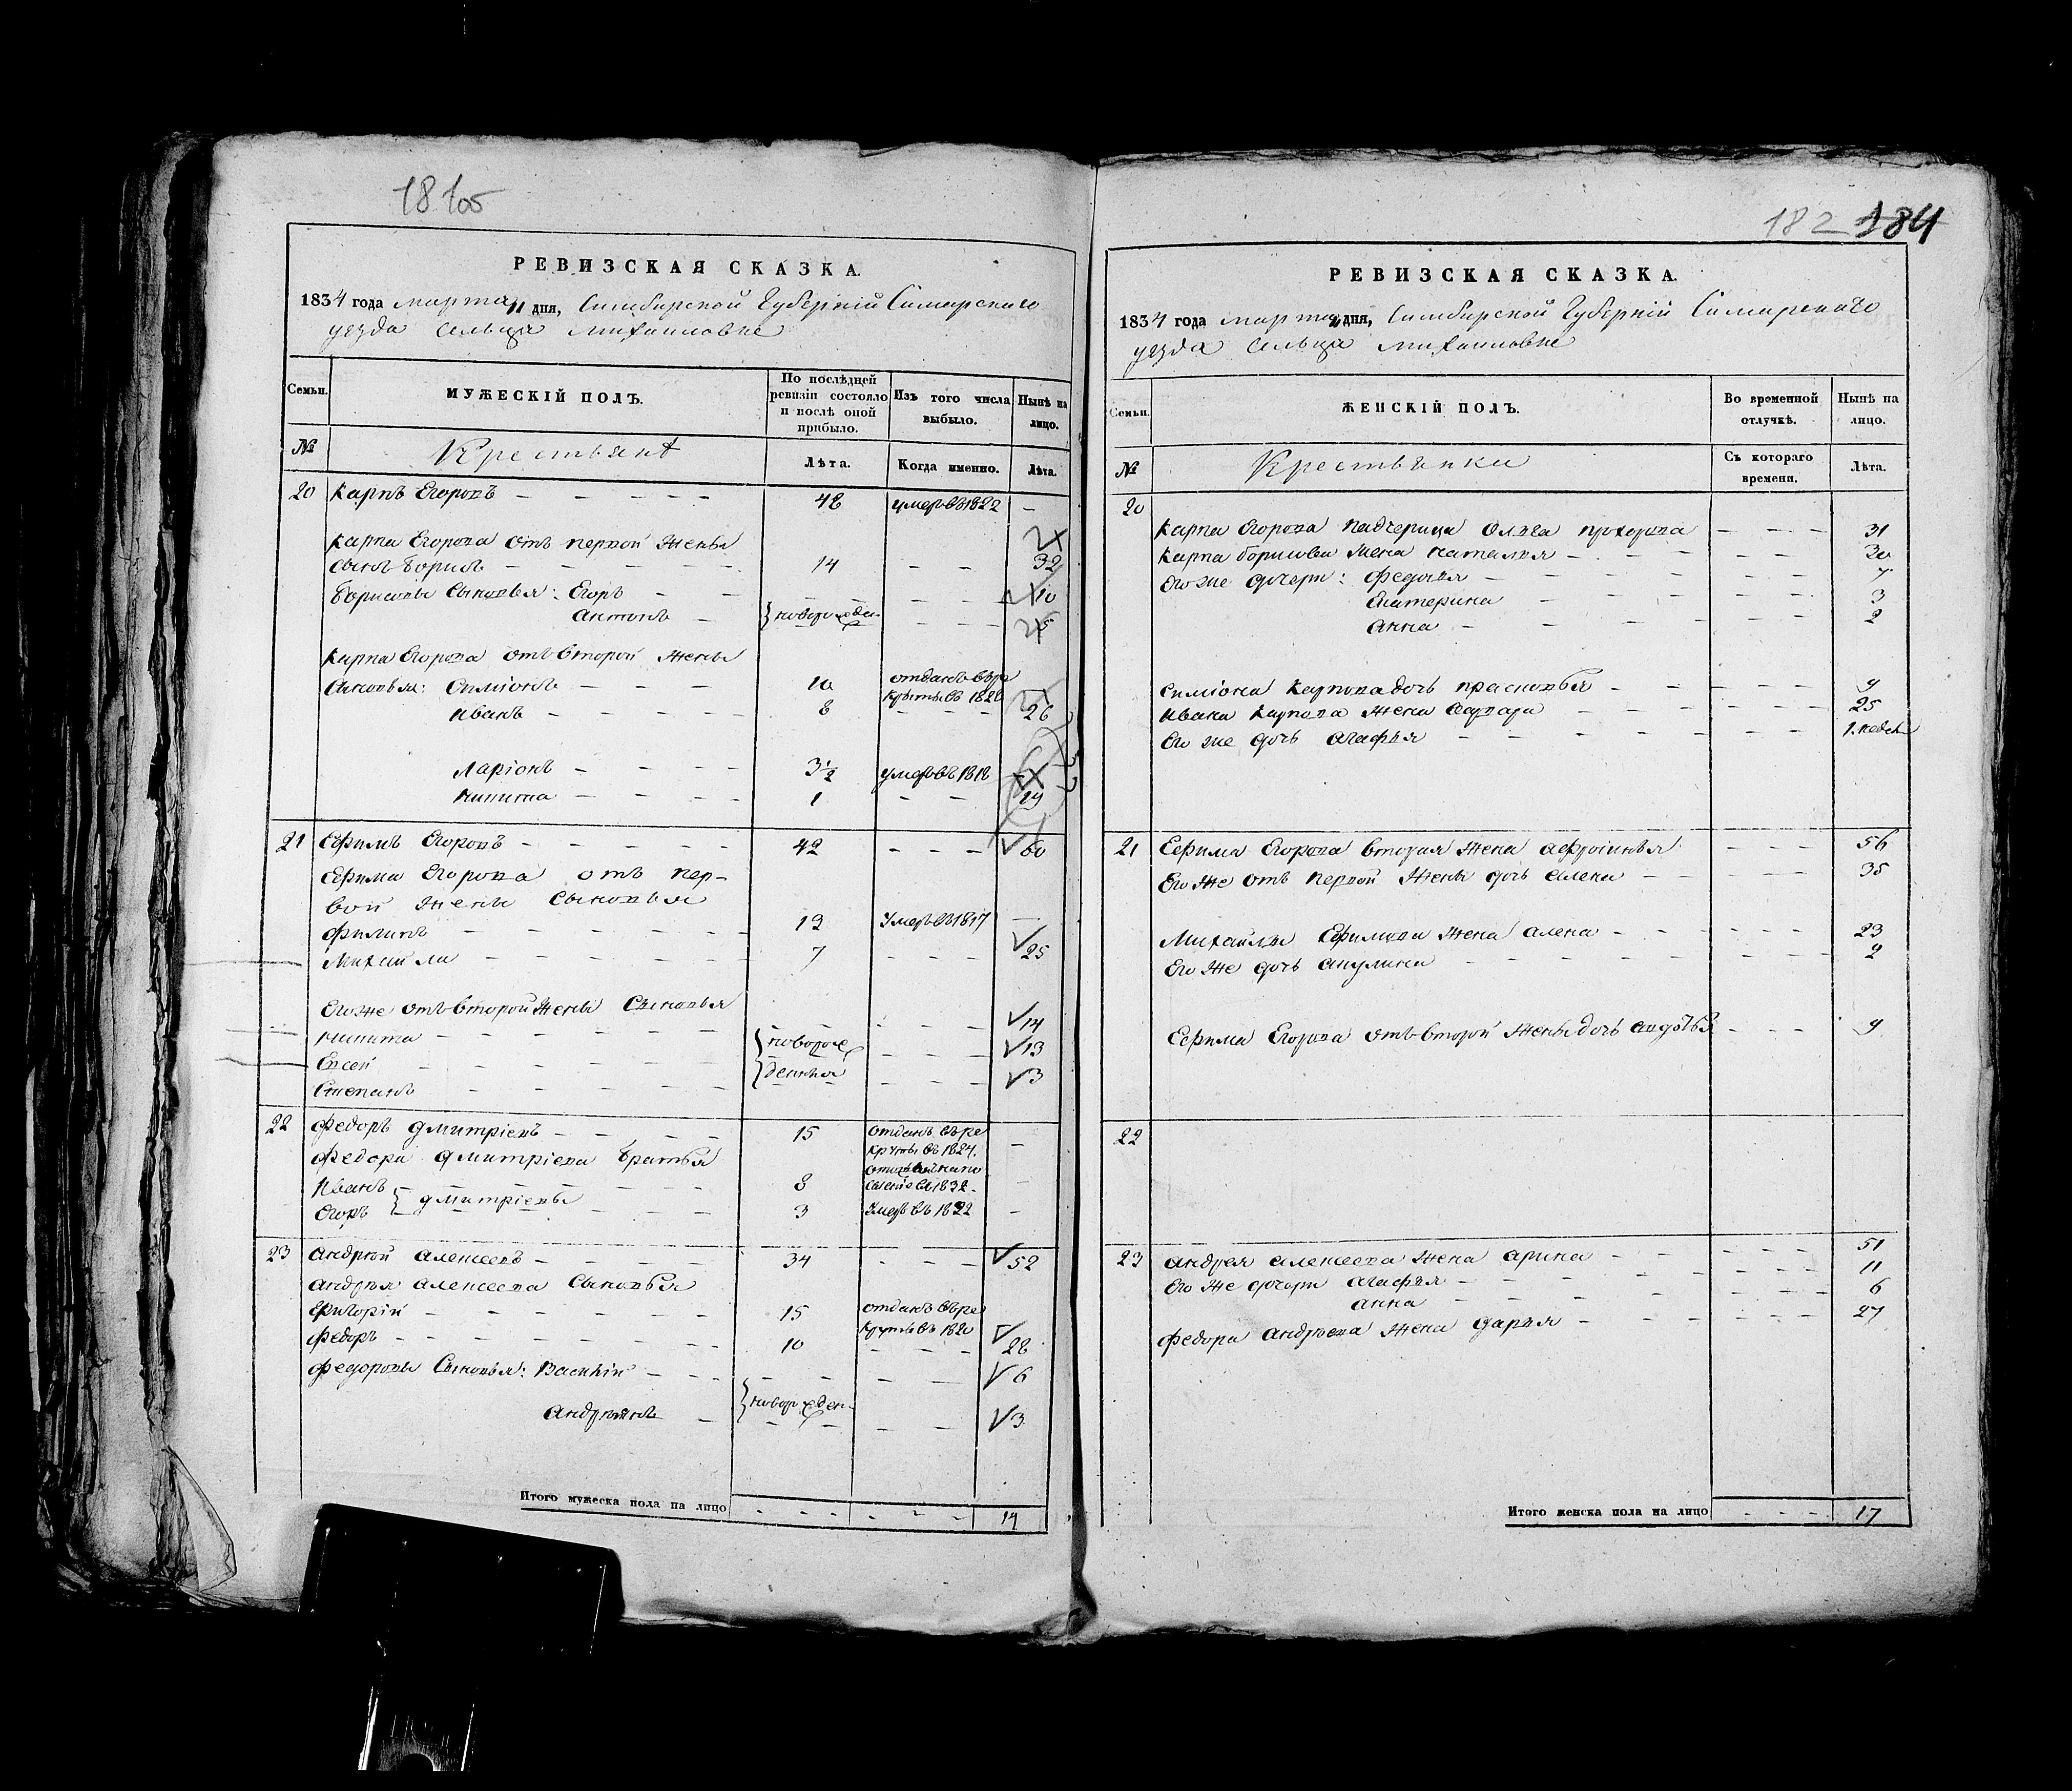 РЕВИЗСКАЯ СКАЗКА.
1834 года марта 11 дня, Симбирской Губернiи Самарскаго
уезда сельца михаиловки
Семьи.
МУЖЕСКІЙ ПОЛЪ.
По послѣдней ревизіи состояло и послѣ оной прибыло.
Изъ того числа выбыло.
Нынѣ на лицо.
№
Крестьянъ
Лѣта.
Когда именно.
Лѣта.
20 Карпъ Егоровъ 48 умеръ въ 1822 —
Карпа Егорова отъ первой жены
сынъ Борисъ 14 32
Борисовы сыновья: Егоръ 10
Антонъ новорожден. 5
Карпа Егорова отъ второй жены
сыновья: Симіонъ 10 отданъ въ рекруты въ 1828
Иванъ 8 26
Ларіонъ 3½ умеръ въ 1818
Никита 1 19
21 Ефимъ Егоровъ 42 60
Ефима Егорова отъ пер-
вой жены сыновья
Филипъ 12 умеръ въ 1817 —
Михаила 7 25
Его же отъ второй жены сыновья
Никита 14
Евсей новорожденныя 13
Степанъ 3
22 Федоръ Дмитріевъ 15 отданъ въ рекруты въ 1824. —
Федора Дмитріева братья
Иванъ 8 въ 1832.
Егоръ Дмитріевы 3 умеръ въ 1822 —
23 Андрей Алексеевъ 34 52
Андрея Алексеева сыновья
Григорій 15 отданъ въ рекруты въ 1820
Федоръ 10 28
Федоровы сыновья: Василій 6
новорожден. 3
Итого мужеска пола на лицо 14
182 184
РЕВИЗСКАЯ СКАЗКА.
1834 года марта дня, Симбирской Губерніи Самарскаго
уезда сельца михаиловки
Семьи.
ЖЕНСКІЙ ПОЛЪ.
Во временной отлучкѣ.
Нынѣ на лицо.
№
Крестьянки
Съ котораго времени.
Лѣта.
20
Карпа Егорова падчерица прохорова 31
Карпа борисова жена наталья 30
Его же дочери: Федосья 7
Екатерина 3
Анна 2
Симіона Карпова дочь прасковья 9
Ивана Карпова жена варвара 25
Его же дочь агафья 1. недель
21 Ефима Егорова вторая жена афросинья 56
Его же отъ первой жены дочь елена 35
Михайлы Ефимова жена алена 23
Его же дочь акулина 2
Ефима Егорова отъ второй жены дочь авдотья 9
22
23 Андрея Алексеева жена арина 51
Его же дочери агафья 11
анна 6
Федора Андреева жена дарья 27
Итого женска пола на лицо 17